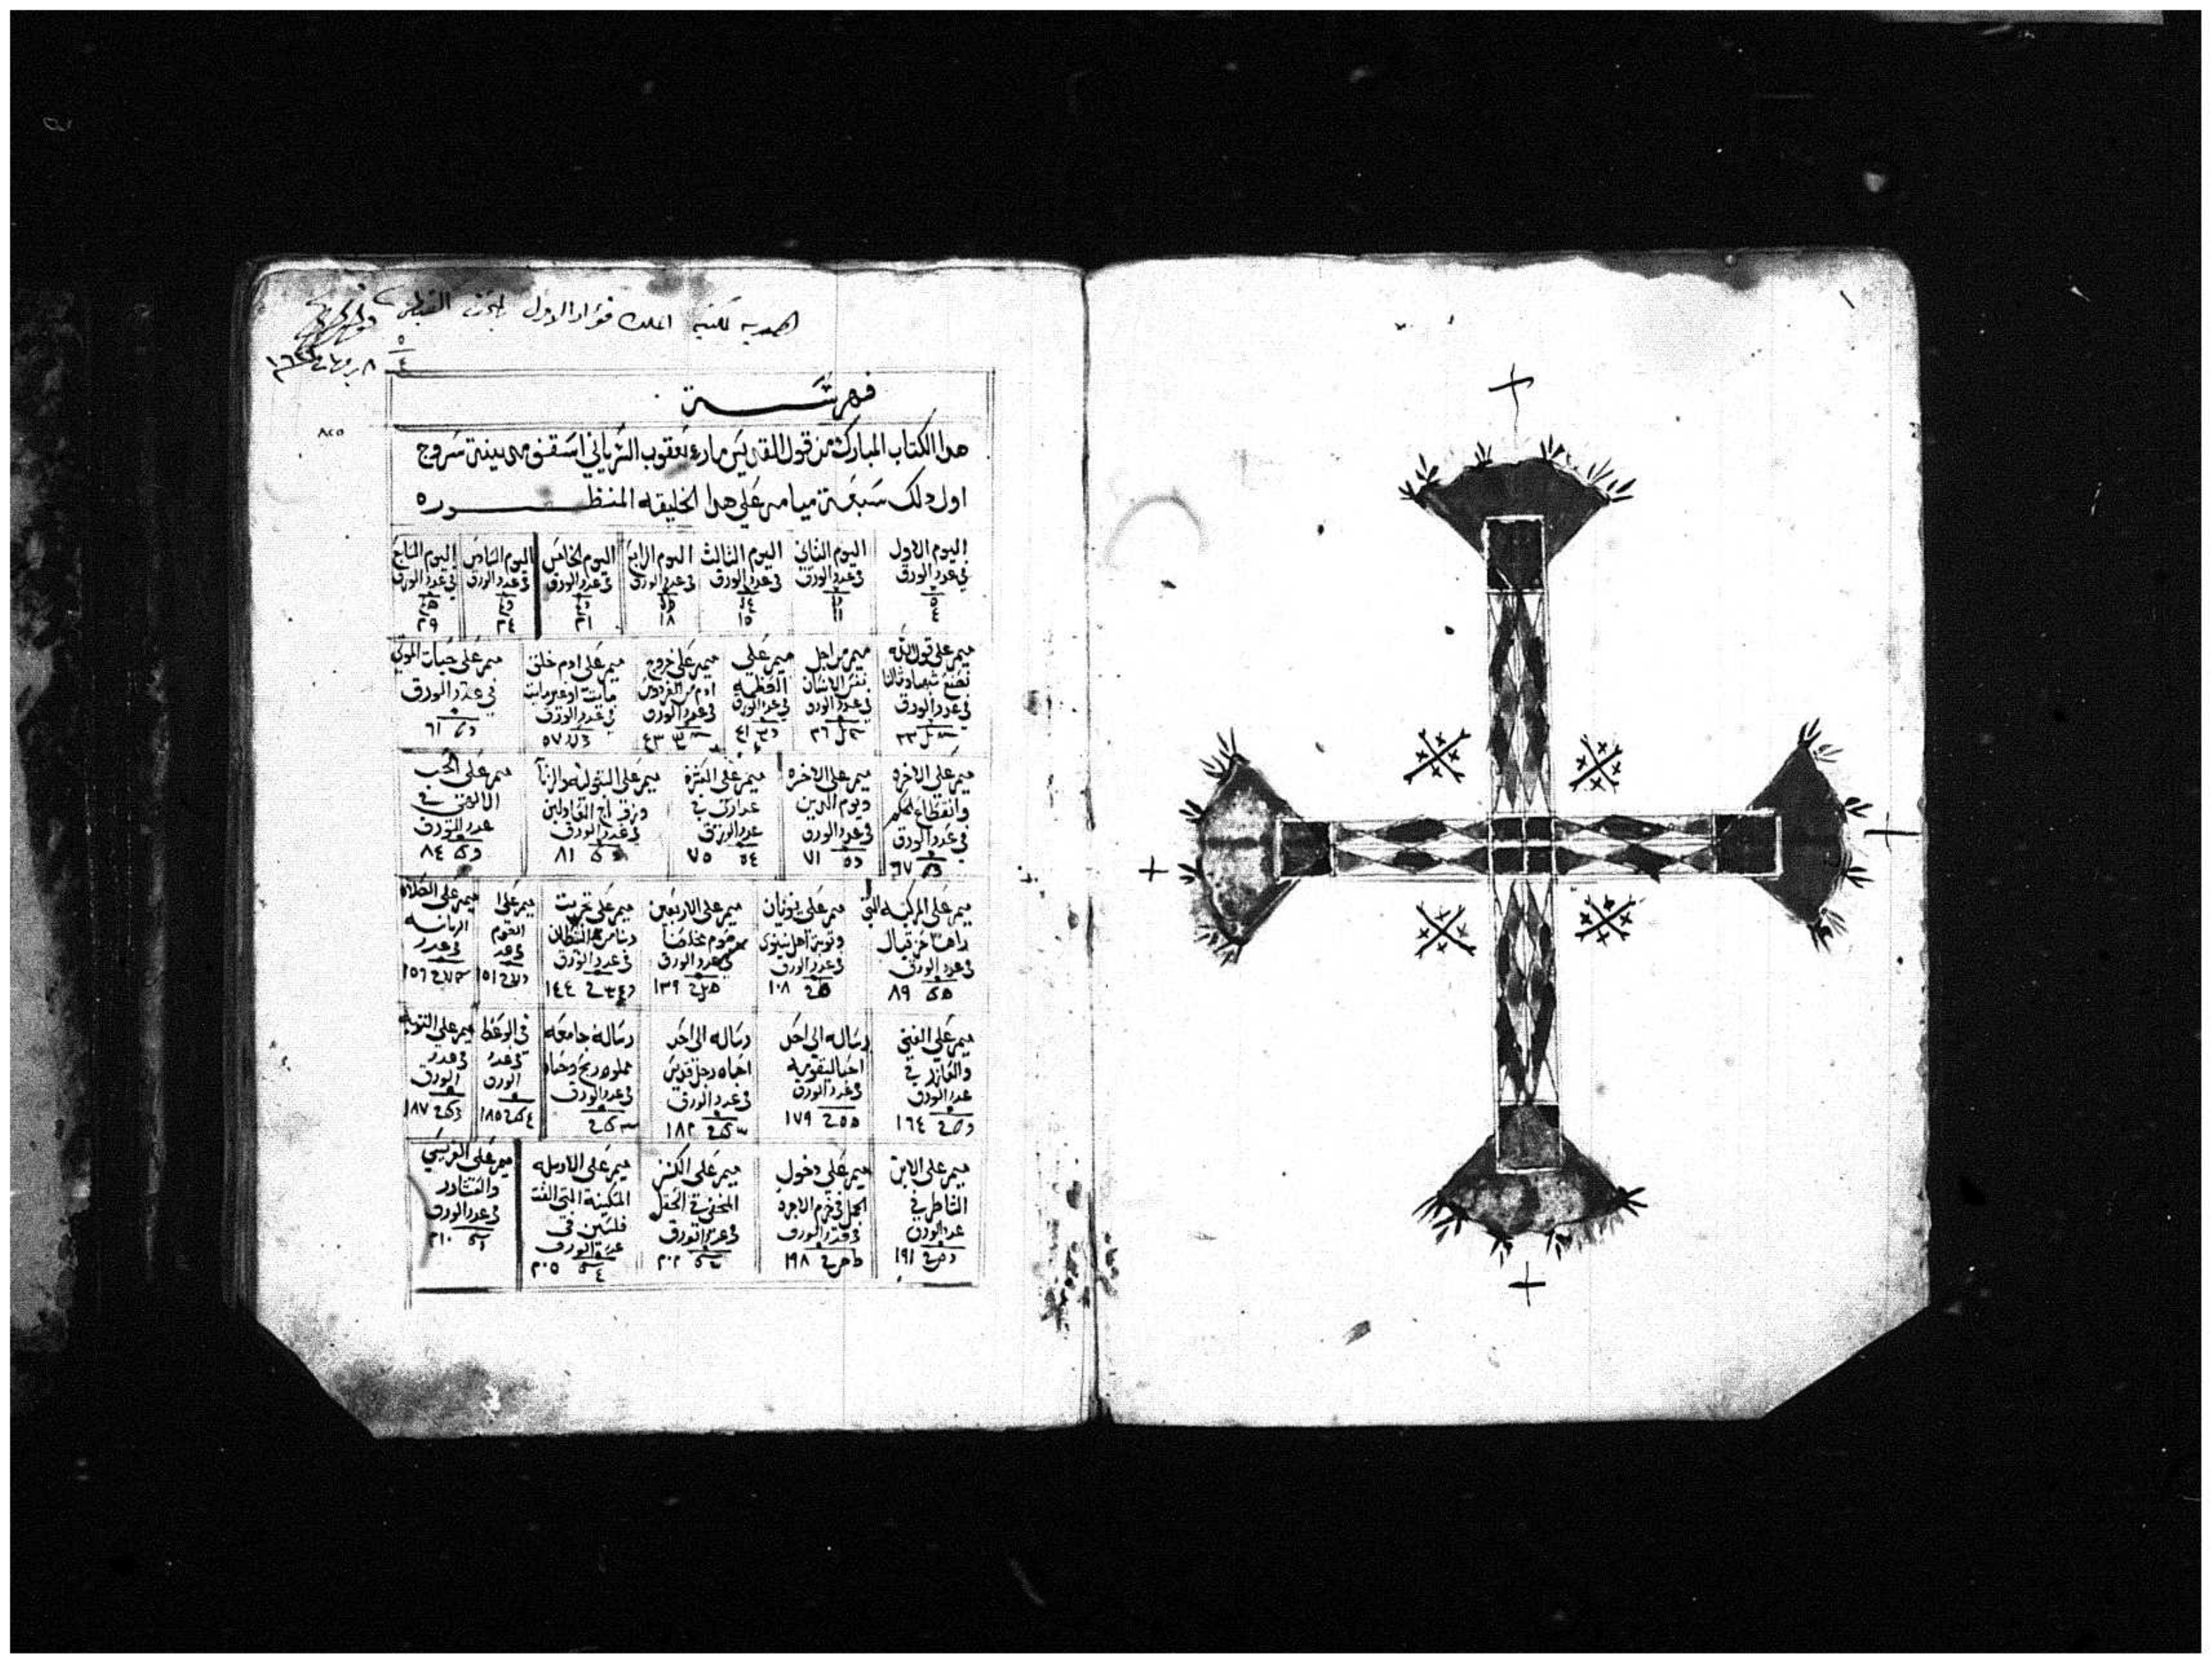 اهديه لمكتبة الملك فؤاد الاول بالمتحف القبطى
فهرسة
هدا الكتاب المبارك من قول القديس مارى يعقوب السرياني اسقف مدينة سروج
اول دلك سبعة ميامر علي هدا الخليقه المنظوره
اليوم الاول
في عدد الورق
٤
اليوم الثاني
في عدد الورق
١١
اليوم الثالث
في عدد الورق
١٥
اليوم الرابع
في عدد الورق
١٨
اليوم الخامس
في عدد الورق
٢١
اليوم السادس
في عدد الورق
٢٤
اليوم السابع
في عدد الورق
٢٩
ميمر علي قول الله
نصنع شبهاد ومثالنا
في عدد الورق
٣٣
ميمر من اجل
الانسان
في عدد الورق
٣٦
ميمر علي
الخطيه
في عدد الورق
٤١
ميمر علي خروج
ادم من الفردوس
في عدد الورق
٤٣
ميمر علي ادم خلق
مايت او غير مايت
في عدد الورق
٥٧
ميمر علي حيات الموتي
في عدد الورق
٦١
ميمر علي الاخره
وانقطاع
في عدد الورق
٦٧
ميمر علي الاخره
ويوم الدين
في عدد الورق
٧١
ميمر علي العشرة
عدارى في
عدد الورق
٧٥
ميمر علي البتوليه والزنا
في عدد الورق
٨١
ميمر علي الحب
الالاهي في
عدد الورق
٨٤
ميمر علي المركبه التي
راها حزقيال
في عدد الورق
٨٩
ميمر علي يونان
وتوبة اهل نينوى
في عدد الورق
١٠٨
ميمر علي الاربعين
يوم صوم مخلصنا
في عدد الورق
١٣٩
ميمر علي تجربت
ربنا من الشيطان
في عدد الورق
١٤٤
ميمر علي
الصوم
في عدد
١٥١
ميمر علي الصلاه
الربانيه
في عدد
١٥٦
ميمر علي الغني
والعازر في
عدد الورق
١٦٤
رساله الي احد
في عدد الورق
١٧٩
رساله الي احد
احباه رجل قديس
في عدد الورق
١٨٢
رساله جامعه
مملوه ربح وحياه
في عدد الورق
في الوعظ
في عدد
الورق
١٨٥
ميمر علي التوبه
في عدد
الورق
١٨٧
ميمر علي الابن
الشاطر في
عدد الورق
١٩١
ميمر علي دخول
الجمل في خرم الابره
في عدد الورق
١٩٨
ميمر علي الكنز
المخفي في الحقل
في عدد الورق
٢٠٢
ميمر علي الارمله
المسكينة التي القت
فلسين في
عدد الورق
٢٠٥
ميمر علي الفريسي
والعشار
في عدد الورق
٢١٠